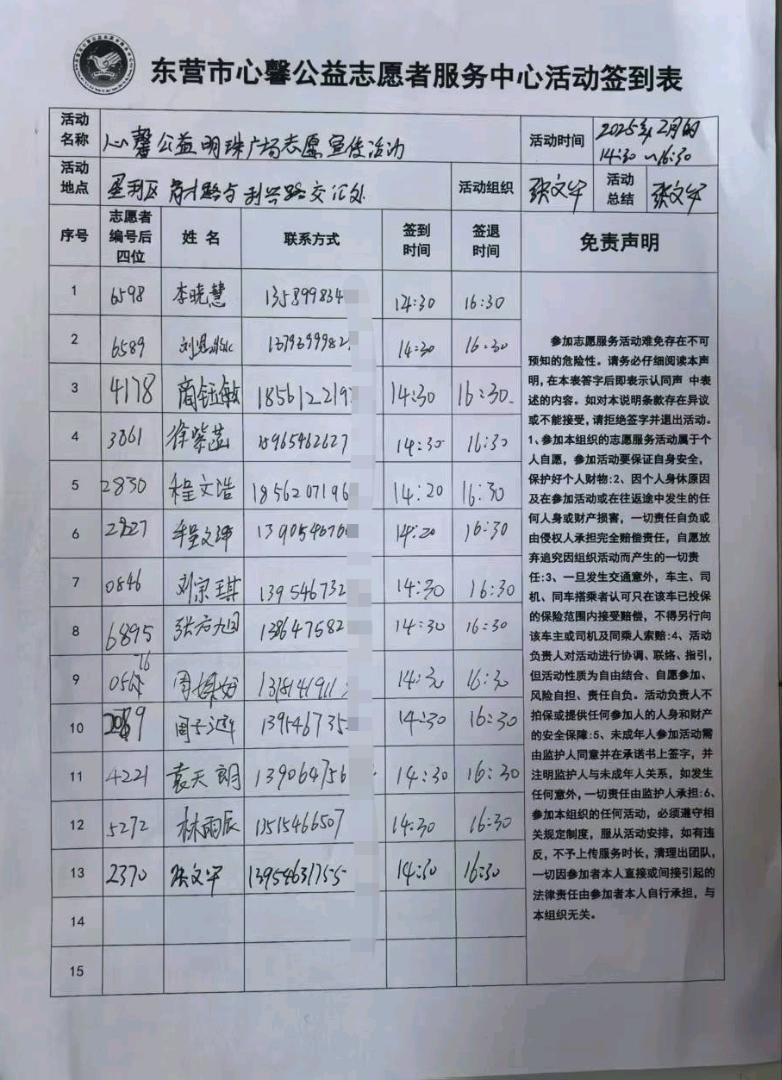 东营市心馨公益志愿者服务中心活动签到表
活动名称 心馨公益明珠广场志愿宣传活动 活动时间 2025年2月 14:30~16:30
活动地点 垦利区 路与利兴路交汇处 活动组织 张文华 活动总结 张文华
序号 志愿者编号后四位 姓名 联系方式 签到时间 签退时间 免责声明
1 6598 李晓慧 135899834 14:30 16:30
2 6589 1379399982 14:30 16:30
3 4178 商钰敏 1856122197 14:30 16:30
4 3861 徐紫菡 15965462627 14:30 16:30
5 2830 程文浩 1856207196 14:20 16:30
6 2827 程文 139054676 14:20 16:30
7 0846 刘宗琪 139546732 14:30 16:30
8 6895 138647582 14:30 16:30
9 周 14:30 16:30
10 周 139546735 14:30 16:30
11 4221 袁天朗 139064756 14:30 16:30
12 5272 林雨辰 1515466507 14:30 16:30
13 2370 张文华 13954631755 14:30 16:30
14
15
参加志愿服务活动难免存在不可
预知的危险性。请务必仔细阅读本声
明,在本表签字后即表示认同声 中表
述的内容。如对本说明条款存有异议
或不能接受,请拒绝签字并退出活动。
1、参加本组织的志愿服务活动属于个
人自愿,参加活动要保证自身安全,
保护好个人财物:2、因个人身休原因
及在参加活动或在往返途中发生的任
何人身或财产损害,一切责任自负或
由侵权人承担完全赔偿责任,自愿放
弃追究因组织活动而产生的一切责
任:3、一旦发生交通意外,车主、司
机、同车搭乘者认可只在该车已投保
的保险范围内接受赔偿,不得另行向
该车主或司机及同乘人索赔:4、活动
负责人对活动进行协调、联络、指引,
但活动性质为自由结合、自愿参加、
风险自担、责任自负。活动负责人不
拍保或提供任何参加人的人身和财产
的安全保障:5、未成年人参加活动需
由监护人同意并在承诺书上签字,并
注明监护人与未成年人关系,如发生
任何意外,一切责任由监护人承担:6、
参加本组织的任何活动,必须遵守相
关规定制度,服从活动安排,如有违
反,不予上传服务时长,清理出团队,
一切因参加者本人直接或间接引起的
法律责任由参加者本人自行承担,与
本组织无关。